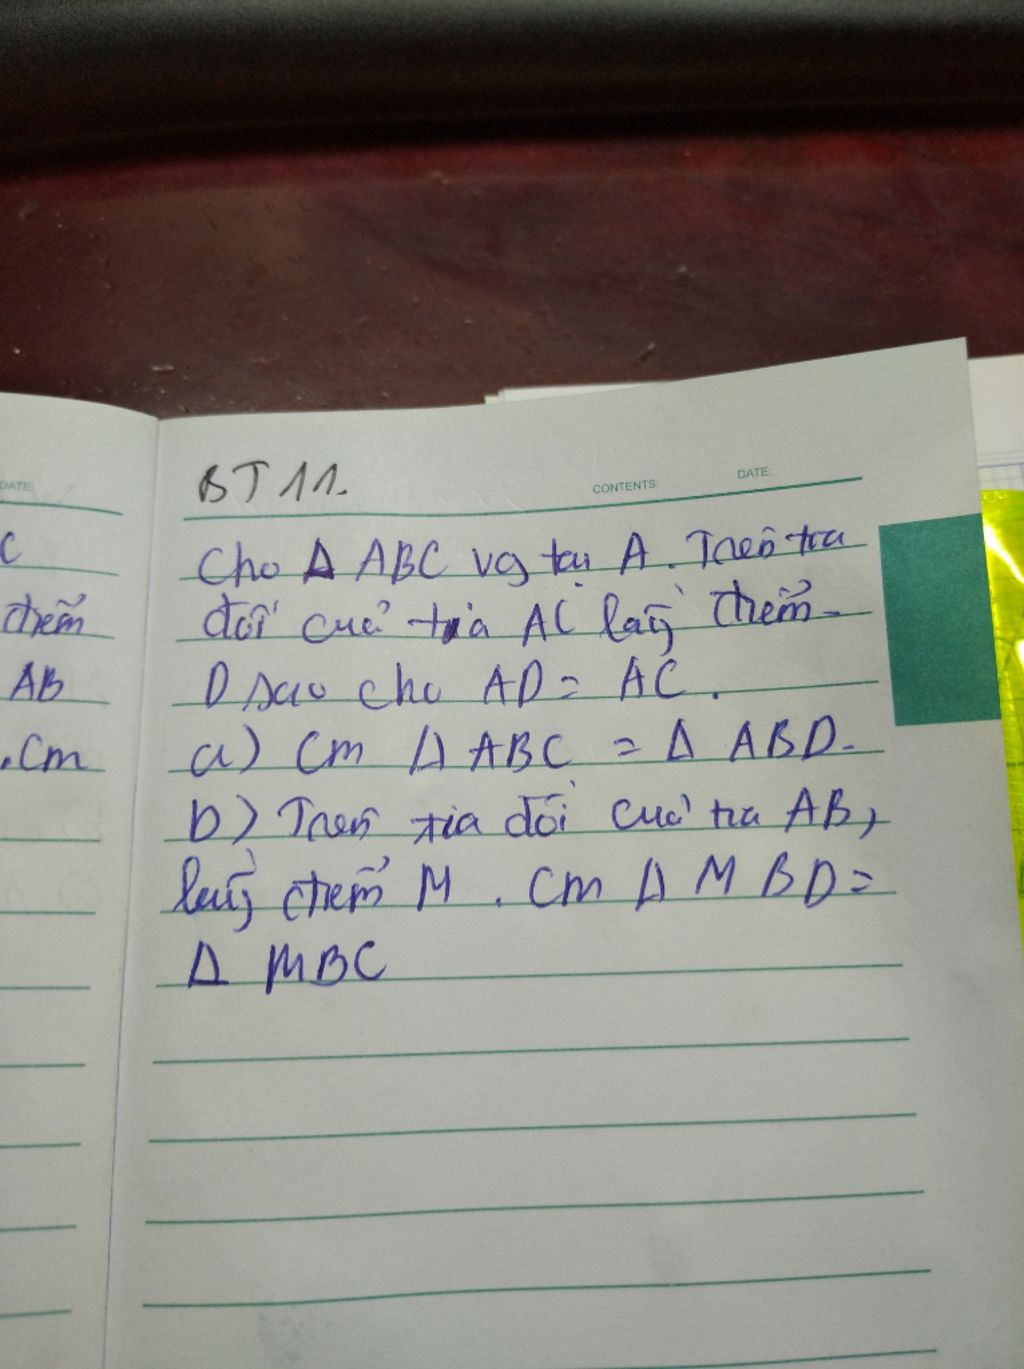 DATE:
C
điểm
AB
. Cm
BT 11.
CONTENTS:
DATE:
Cho Δ ABC vg tại A. Trên tia
đối của tia AC lấy điểm
D sao cho AD = AC.
a) Cm Δ ABC = Δ ABD.
b) Trên tia đối của tia AB,
lấy điểm M. Cm Δ MBD =
Δ MBC